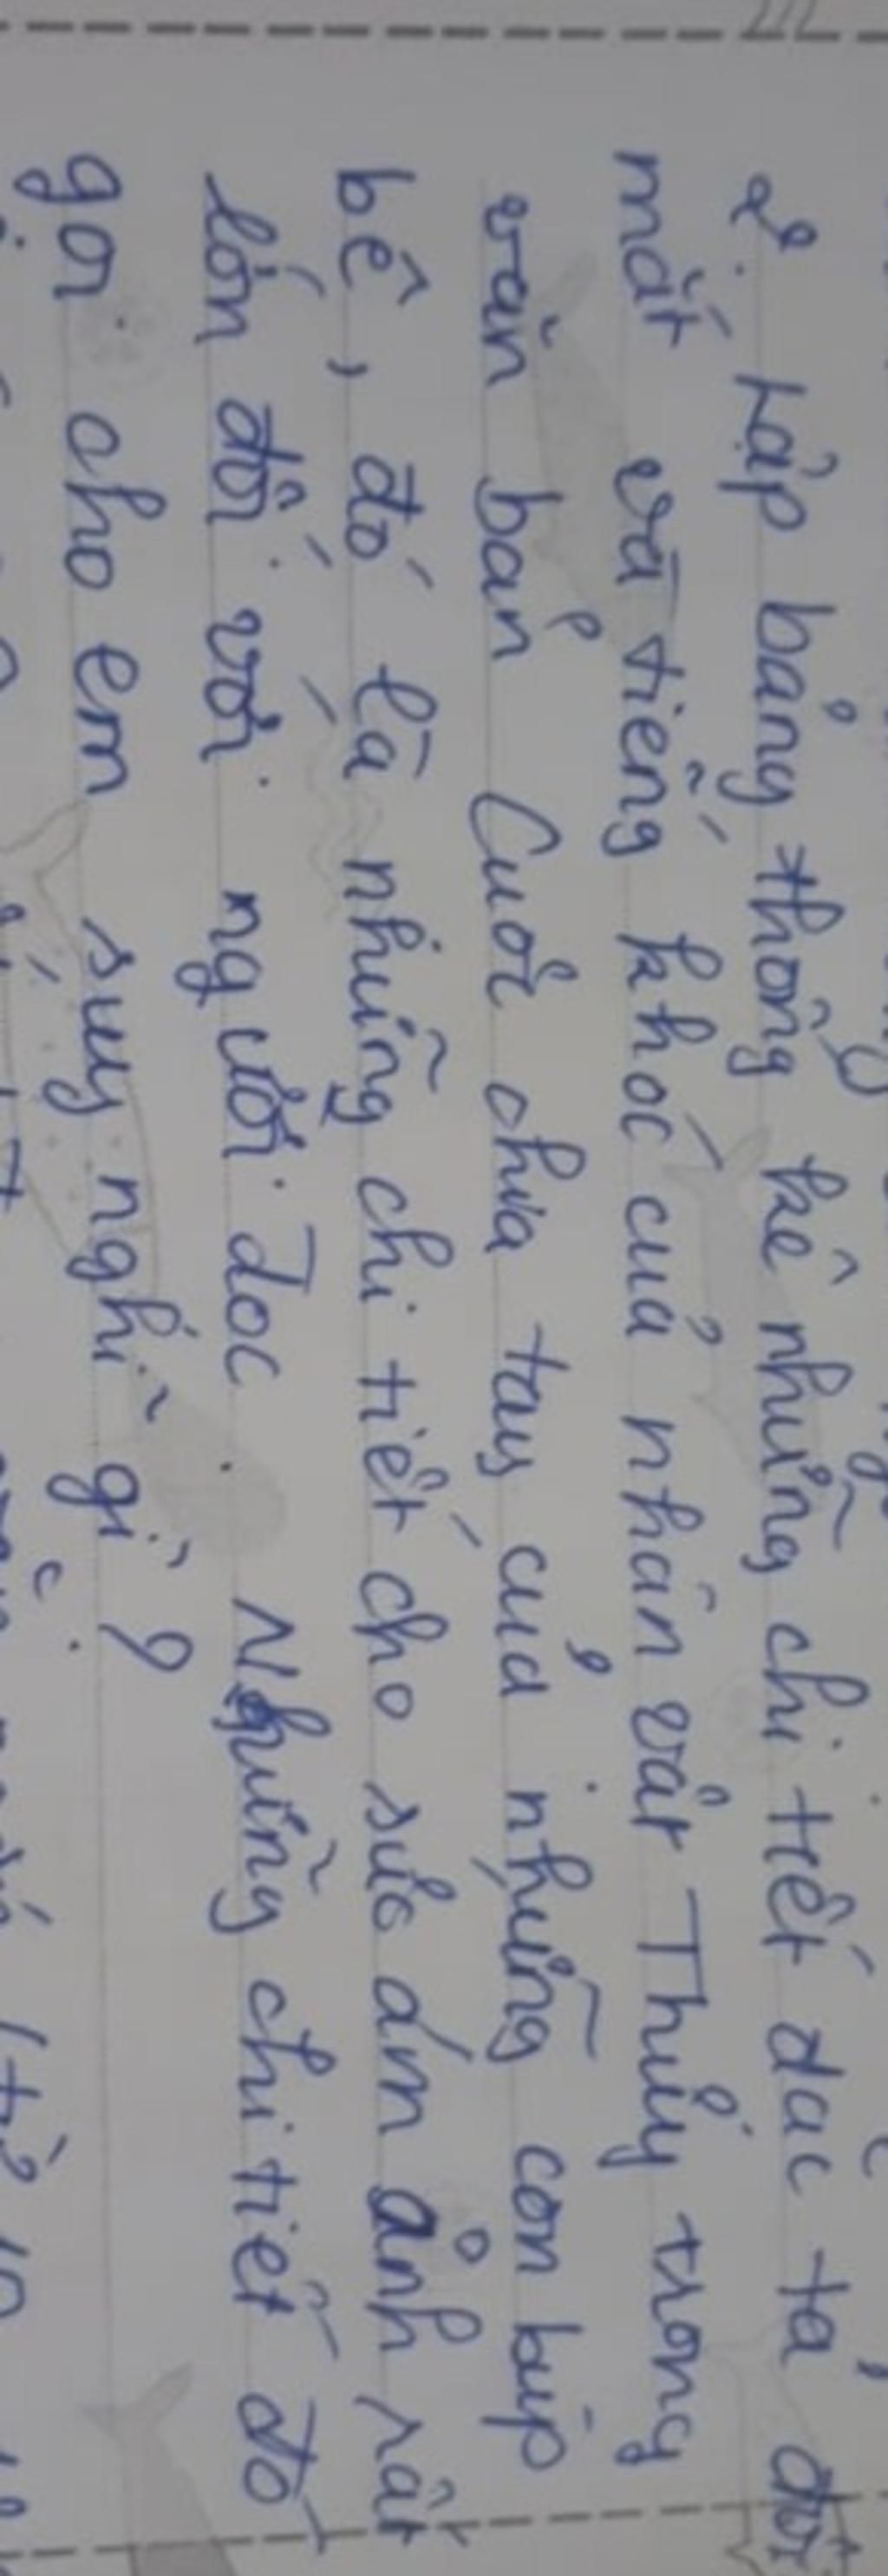 2. Lập bảng thống kê những chi tiết đặc tả đôi
mắt và tiếng khóc của nhân vật Thủy trong
văn bản Cuộc chia tay của những con búp
bê, đó là những chi tiết cho sức ám ảnh rất
lớn đối với người đọc. Những chi tiết đó
gợi cho em suy nghĩ gì?